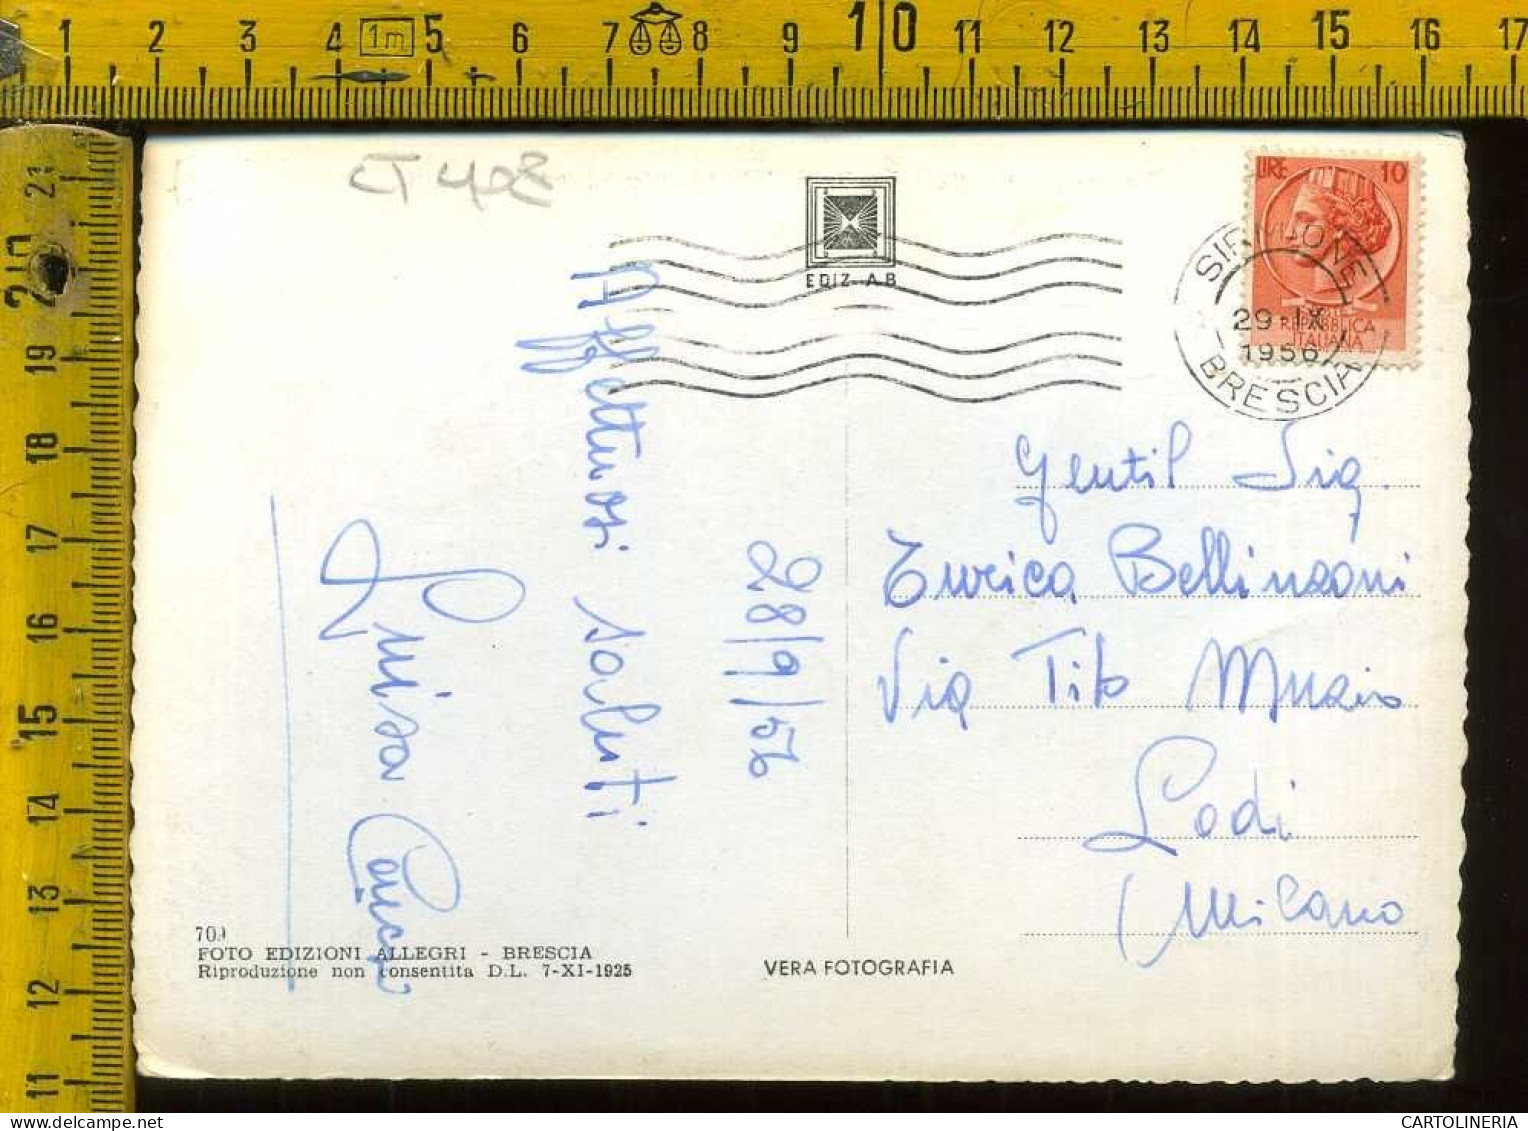 1 2 3 4 1m 5 6 7 8 9 10 11 12 13 14 15 16 17
21
20
19
18
17
16
15
14
13
12
11
CT 408
EDIZ. A.B
LIRE 10
REPUBBLICA
ITALIANA
SIRMIONE
29-IX
1956
BRESCIA
Affettuosi saluti
28/9/56
Luisa
Gentil Sig.
Enrica Bellinzoni
Via Tito Muzio
Lodi
(Milano
700
FOTO EDIZIONI ALLEGRI - BRESCIA
Riproduzione non consentita D.L. 7-XI-1925
VERA FOTOGRAFIA
CARTOLINERIA